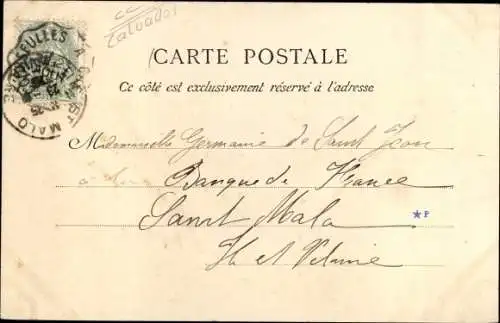 CC
Calvados
CARTE POSTALE
Ce côté est exclusivement réservé à l'adresse
Mademoiselle Germaine de Saint Jean
Banque de France
Saint Malo
Ile et Vilaine
*P
ST MALO